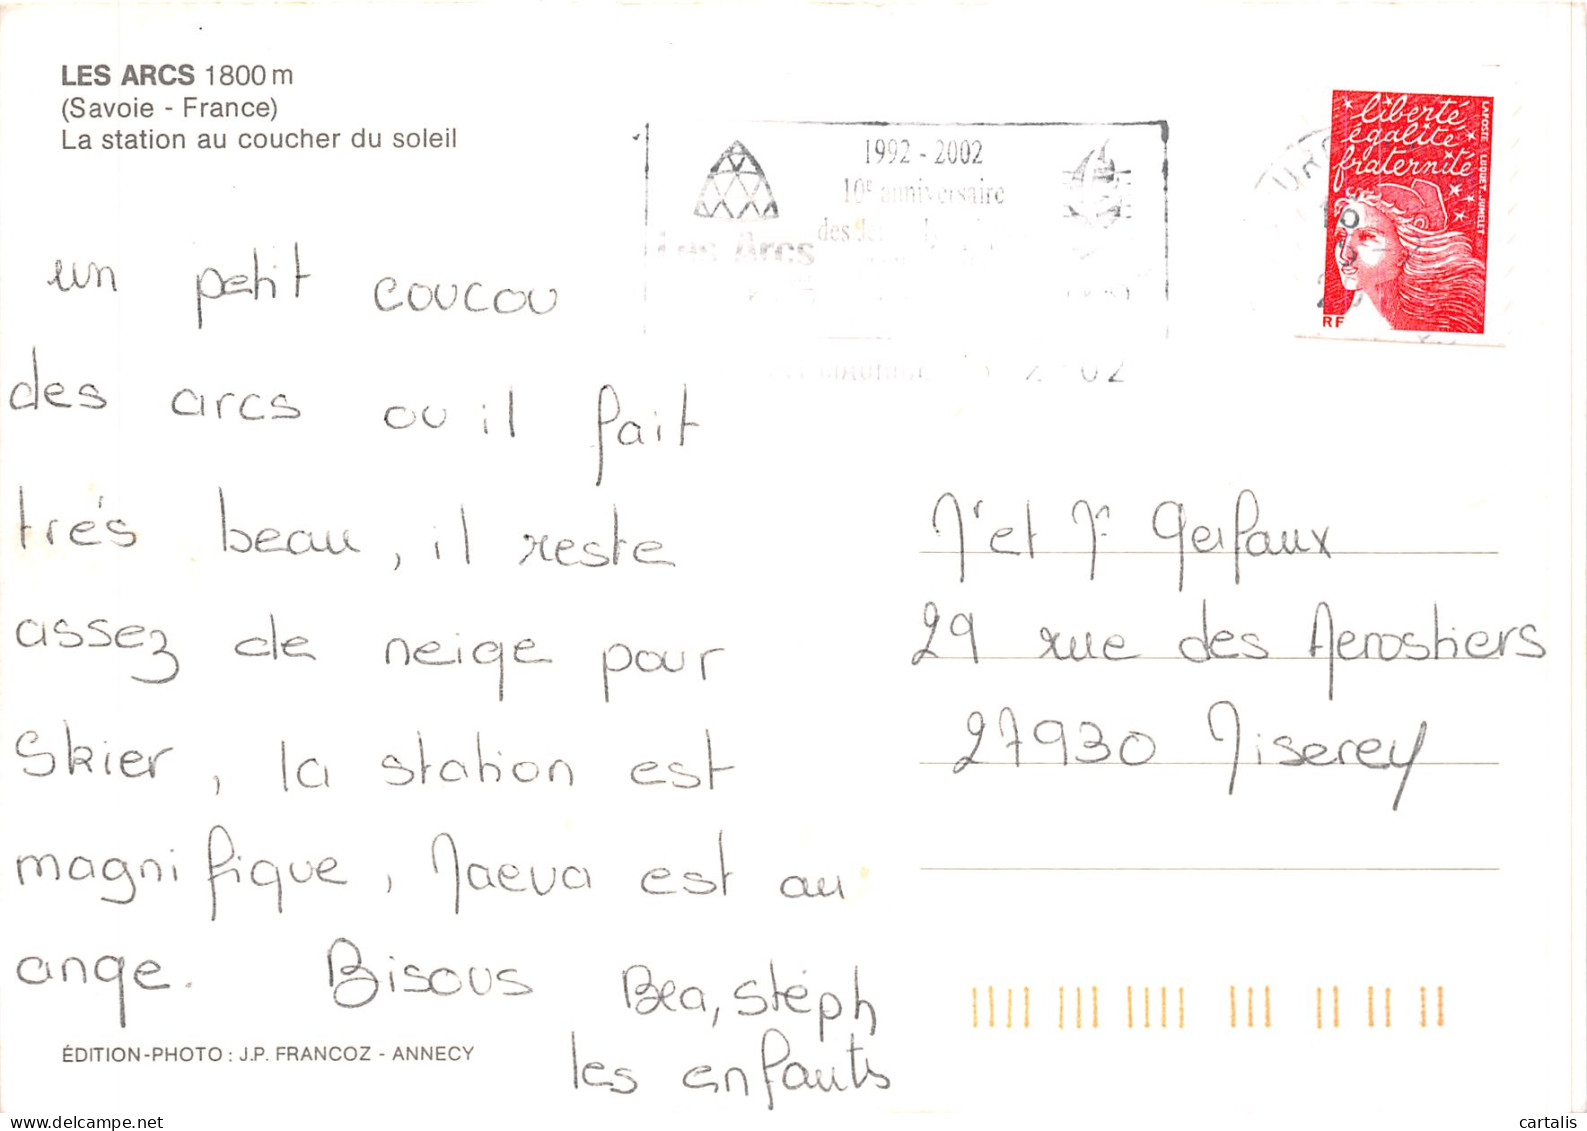 LES ARCS 1800 m
(Savoie - France)
La station au coucher du soleil
1992 - 2002
10e anniversaire
des
Les Arcs
02
liberté
égalité
fraternité
LA POSTE LUQUET. JUMELET
RF
un petit coucou
des arcs ou il fait
trés beau, il reste
assez de neige pour
skier, la station est
magnifique, Maeva est au
ange. Bisous Bea, stéph
les enfants
Mr et Me Gerfaux
29 rue des Aerostiers
27930 Miserey
ÉDITION-PHOTO : J.P. FRANCOZ - ANNECY
cartalis